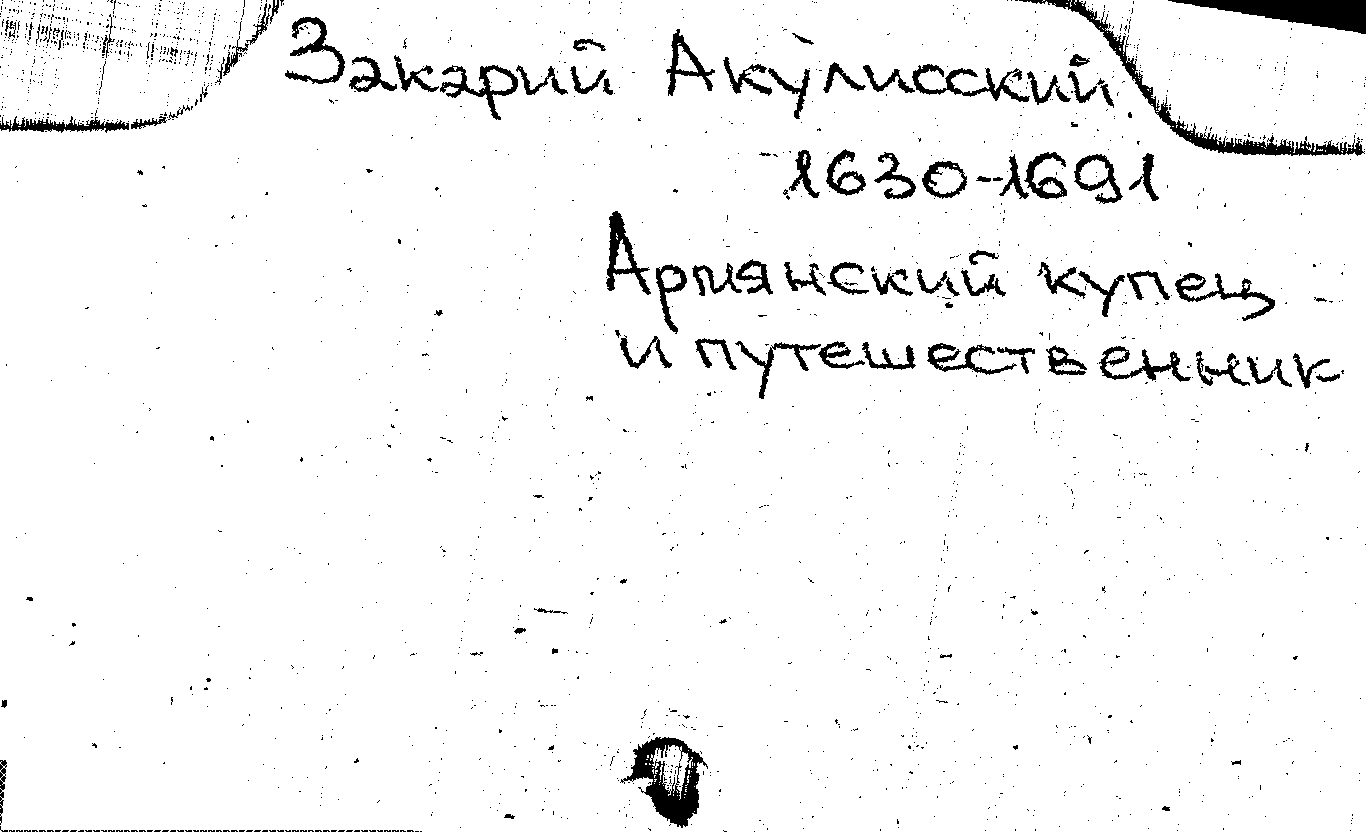 Закарий Акули́сский
1630-1691
Армянский купец
и путешественник